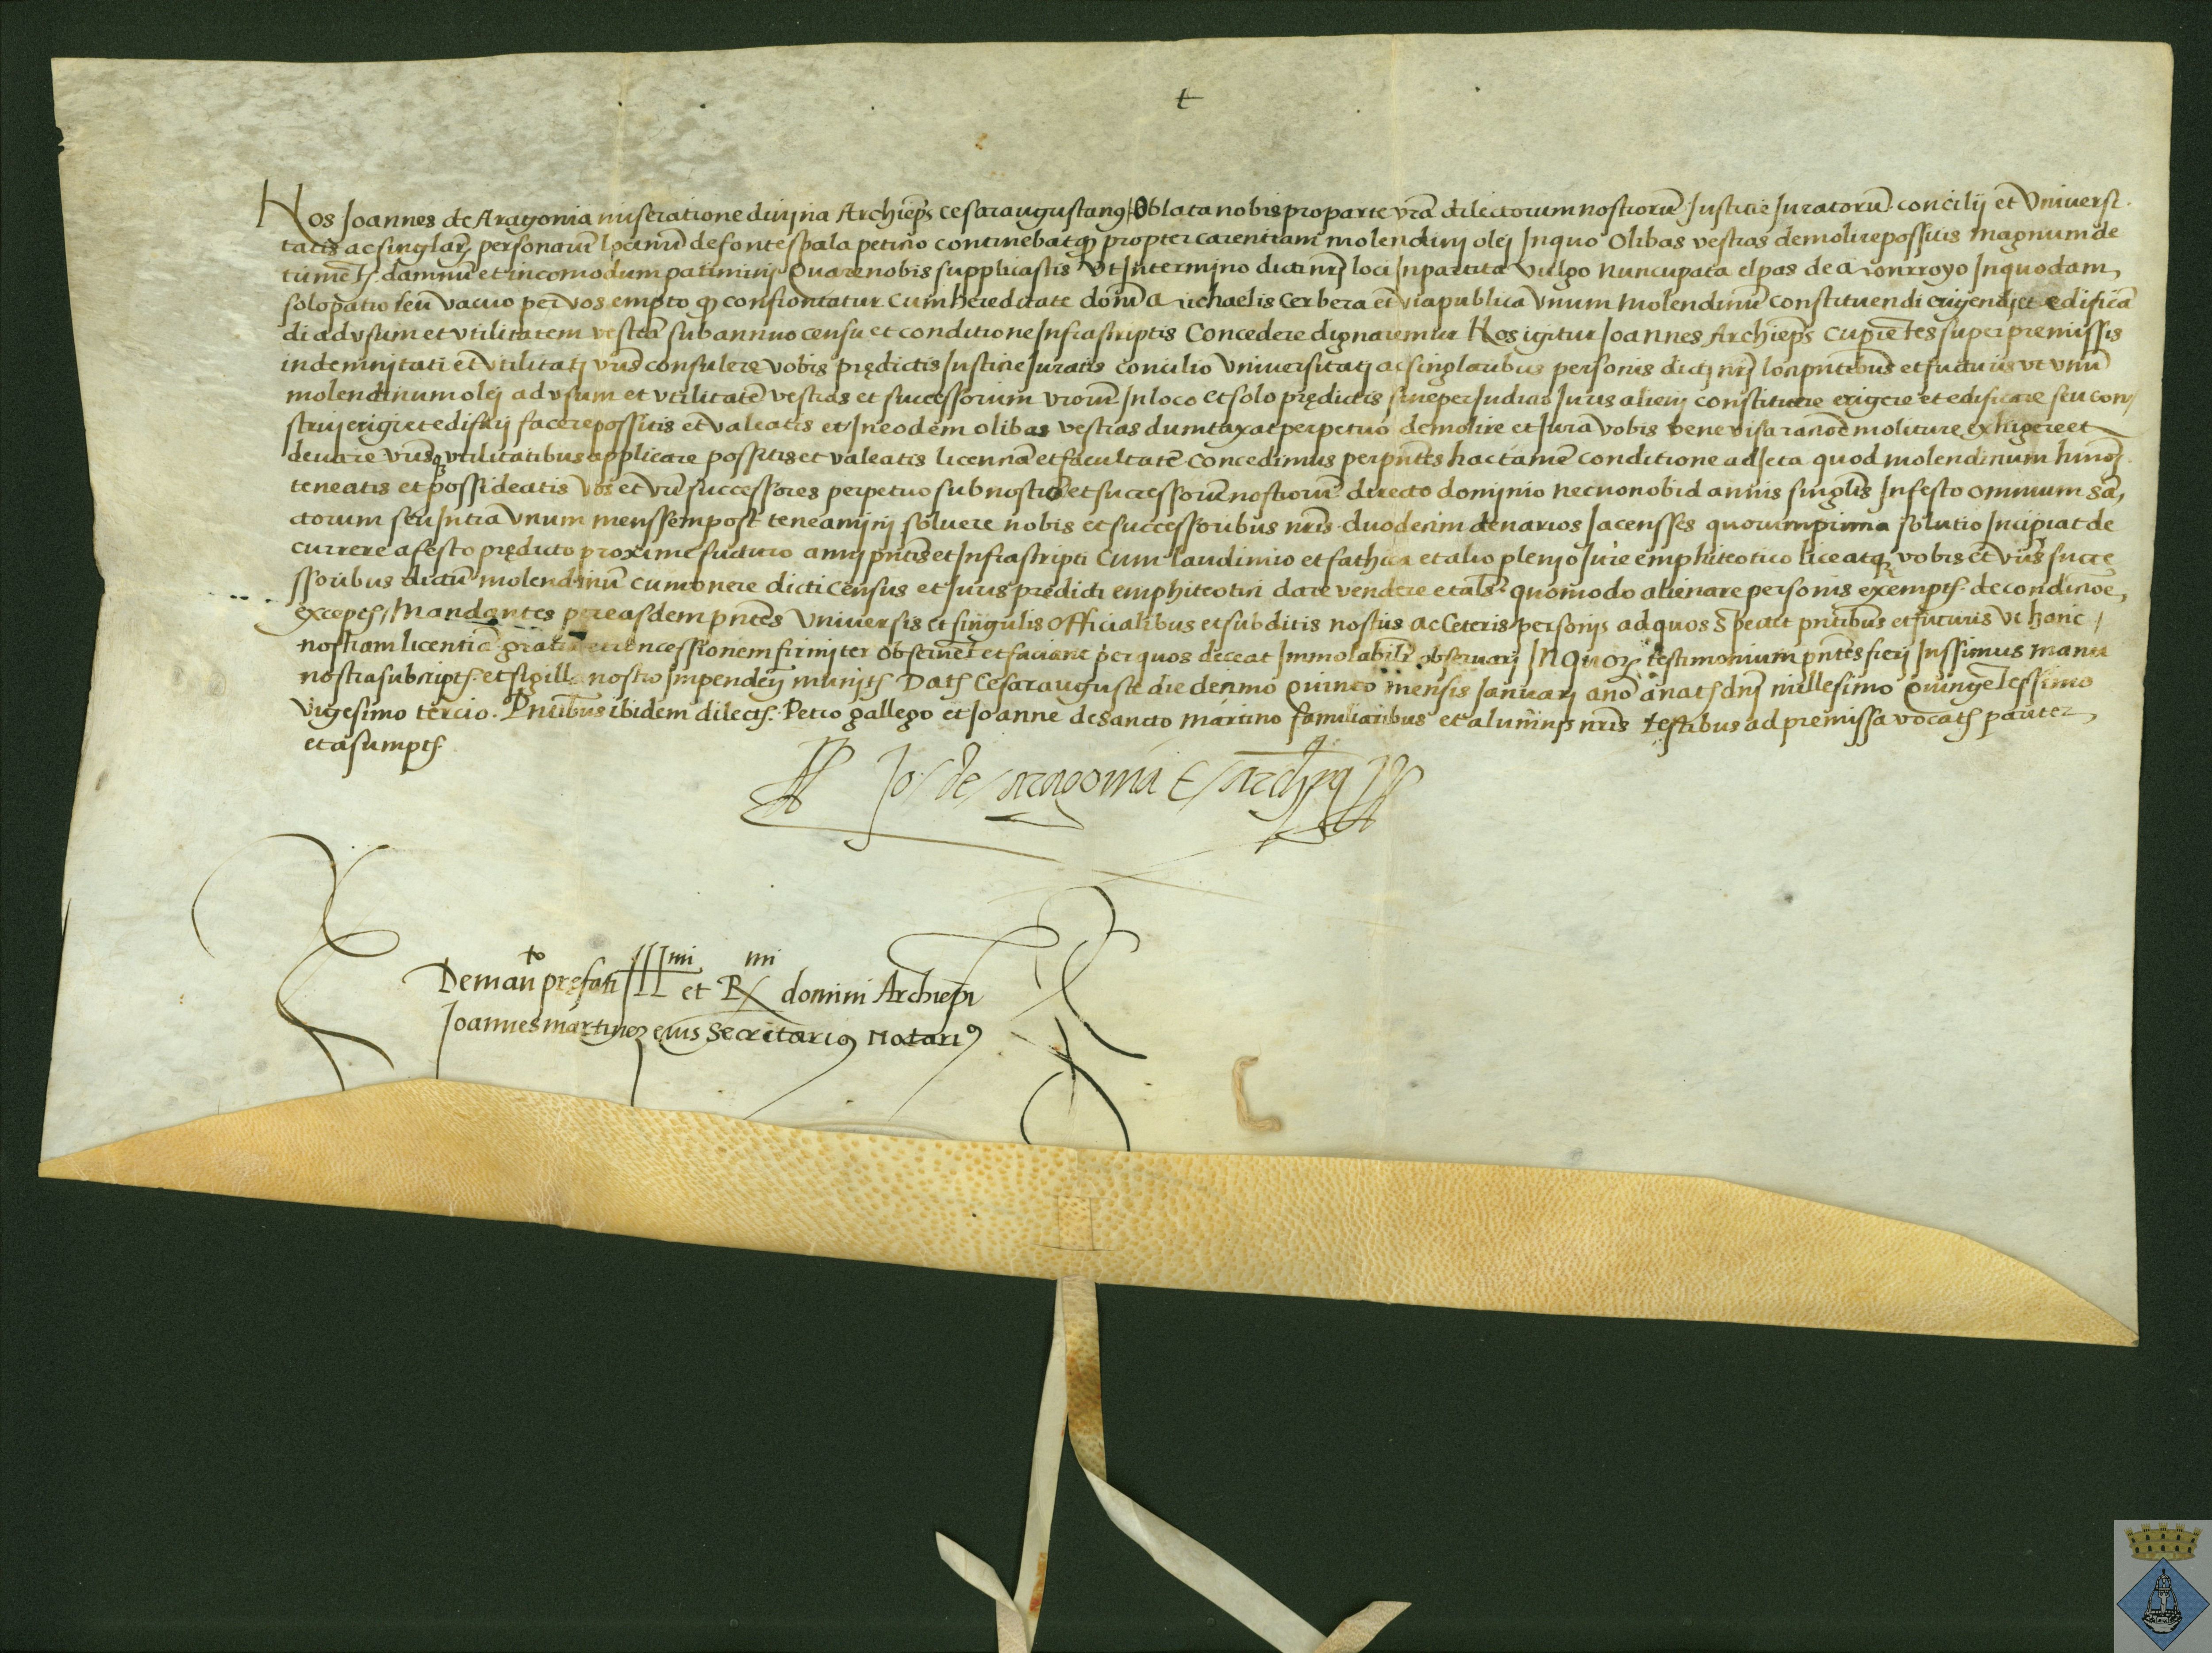 †
Nos Joannes de Aragonia miseratione divina Archiep̃s cesaraugustanꝰ Oblata nobis pro parte vr̃a dilectorum nostrorũ Justitie Juratorũ concilij et Universi
tatis ac singlarꝫ personarũ locinr̃i de fontespala petitio continebatqꝫ propter carentiam molendinj olej Inquo Olibas vestras demolire possitis magnum de
trimẽtꝫ damnũ et incomodum patiminj Quare nobis supplicastis Ut Intermjno dicti nrj̃ loci Inpartita vulgo nuncupata el pas de a Inquodam
solo patio seu vacuo per vos empto qꝫ confrontatur cum hereditate domũ michaelis Cerbera et via publica Vnum Molendinũ constituendi erigendj et edificã
di ad vsum et vtilitatem vestrã sub annuo censu et conditione Infrascriptis Concedere dignaremur Nos igitur Joannes Archiep̃s cupiẽtes super premissis
indemnjtati et vtilitatj vr̃e consulere vobis prędictis Justitie Juratis concilio Universitatj ac singlaribus personis dictj nrj̃ loci pñtibus et futuris vt vnũ
molendinum olej ad vsum et vtilitatẽ vestras et successorum vrorũ In loco et solo prędictis sine perJudicio Juris alienj constituere erigere et edificare seu cons
truj erigi et edificij facere possitis et valeatis et In eodẽm olibas vestras dumtaxat perpetuo demolire et Jura vobis bene visa racioẽ moliture exhigere et
devare vrisqꝫ vtilitatibus applicare possitis et valeatis licenciã et facultatẽ Concedimus per pñtes hac tamẽ conditione adjeta quod molendinum hmõꝫ
teneatis et possideatis Vos et vr̃i successores perpetuo sub nostro et successorũ nostrorũ directo dominio necnon obid annis singlis In festo omnium sã
ctorum seu Intra Vnum menssem post teneaminj solvere nobis et successoribus nr̃is duodecim denarios Jacensses quorum prima solutio Incipiat de
currere a festo prędicto proxime futuro annj pñtis et Infrascripti Cum laudimio et fathica et alio plenjo Jure emphiteotico liceatqꝫ vobis et vr̃is succe
ssoribus dictũ molendinũ cum onere dicti Census et Juris predicti emphiteotici dare vendere et als̃ quomodo alienare personis exemptꝭ de condicioẽ
exceptꝭ Mandantes per easdem pñtes Universis et singulis Officialibus et subditis nostris ac Ceteris personjs ad quos spectet pñtibus et futuris Vt hanc
nostram licentiã gratiam et concessionem firmjter Observent et faciant per quos deceat Immolabilr̃ observarj In Quorꝫ testimonium pñtes fierj Jussimus manu
nostra subscriptꝭ et sigillo nostro Impendenj munjtꝭ Datꝭ Cesarauguste die decimo Quinto mensis Januarj anõ a natꝭ dnj̃ millesimo Quingẽtessimo
Vigesimo tercio. Pñtibus ibidem dilectꝭ Petro gallego et Joanne de Sancto Martino familiaribus et alumnjs nr̃is testibus ad premissa vocatꝭ pariter
et asumptꝭ
Jo de aragonia archiepꝰ
De mandto prẹfati Illmi et Rmi domini Archiepi
Joannes martinez eius Secretariꝰ Notariꝰ